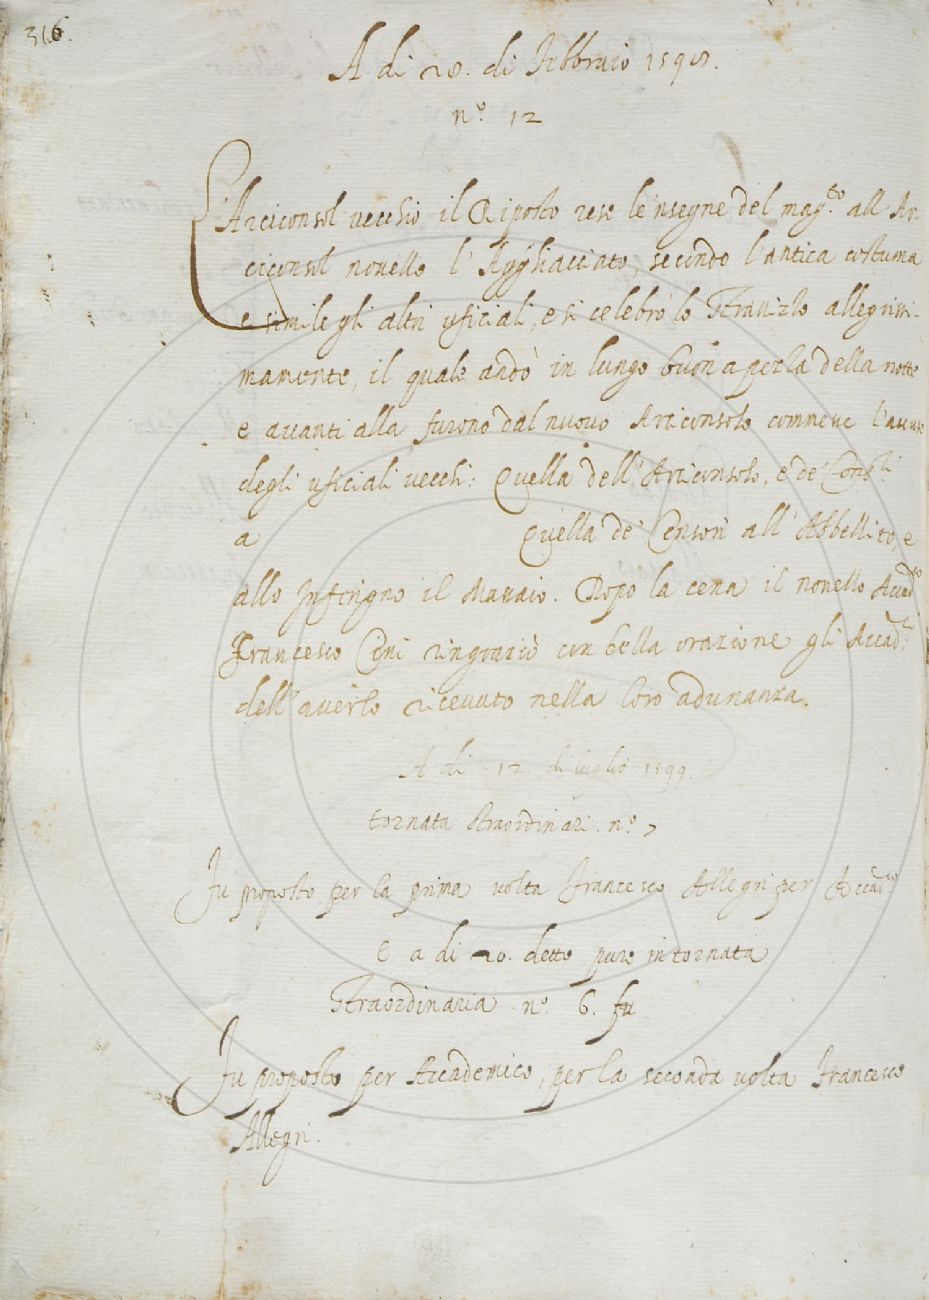 316.
A di 28. di Febbraio 1598.
n.° 12
L'Arciconsol vecchio il Riposto rese le'nsegne del mag.to all Ar-
ciconsol novello l'Agghiacciato secondo l'antica costuma
e simile gli altri uficiali, e si celebrò lo Stravizio allegrissi-
mamente, il quale andò in lungo buon a perla della notte
e avanti alla furono dal nuovo Arciconsolo commesse l'accuse
degli uficiali vecchi: Quella dell'Arciconsolo, e de' Consli.
a Quella de' Censori all'Abbellito, e
allo Inferigno il Massaio. Dopo la cena il novello Accadco
Francesco Cini ringraziò con bella orazione gli Accadci.
dell'averlo ricevuto nella loro adunanza.
A di 12. di luglio 1599.
tornata straordinari. n.° 7
Fu proposto per la prima volta Francesco Allegri per Accadco
E a di 20. detto pure in tornata
Straordinaria n.° 6. fu
Fu proposto per Accademico, per la seconda volta Francesco
Allegri.